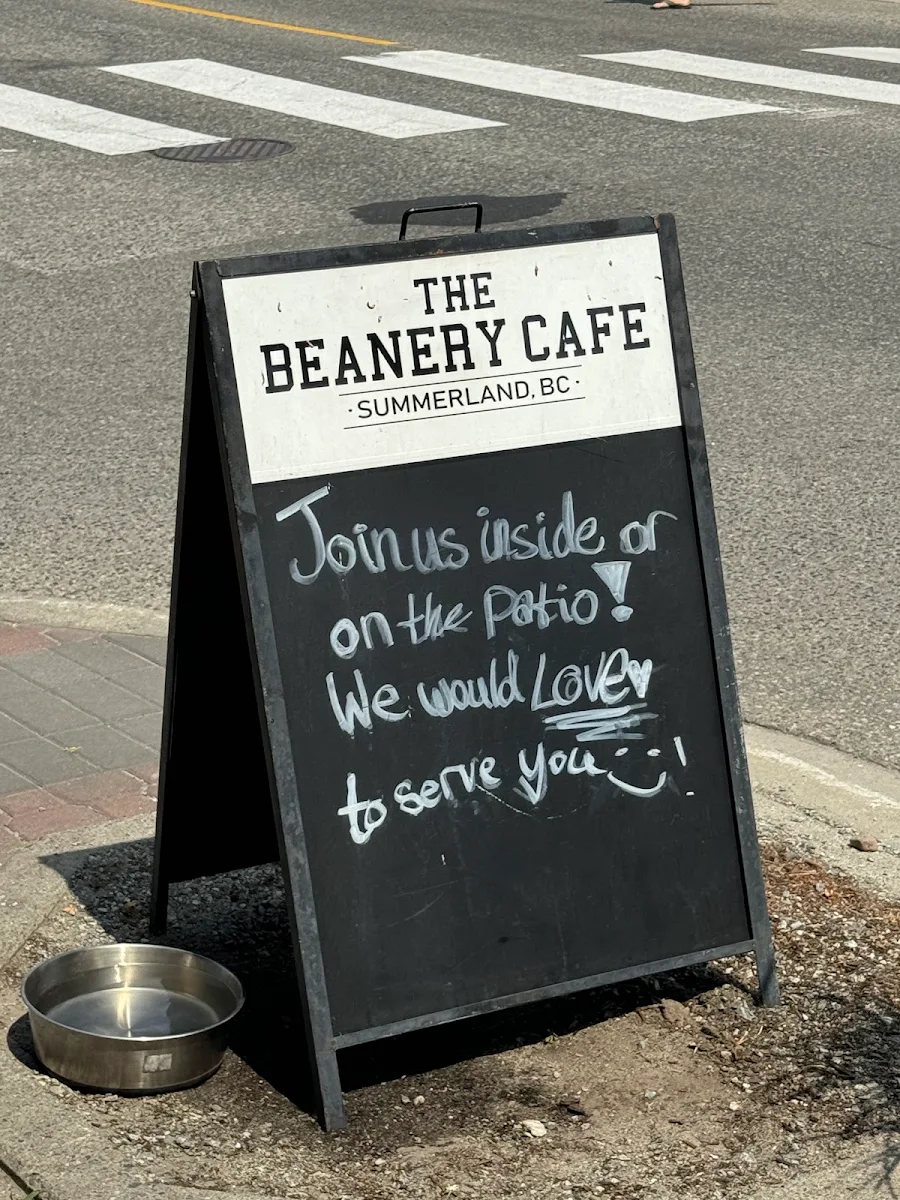 THE
BEANERY CAFE
·SUMMERLAND, BC·
Join us inside or
on the Patio!
We would LOVE♥
to serve you :)!